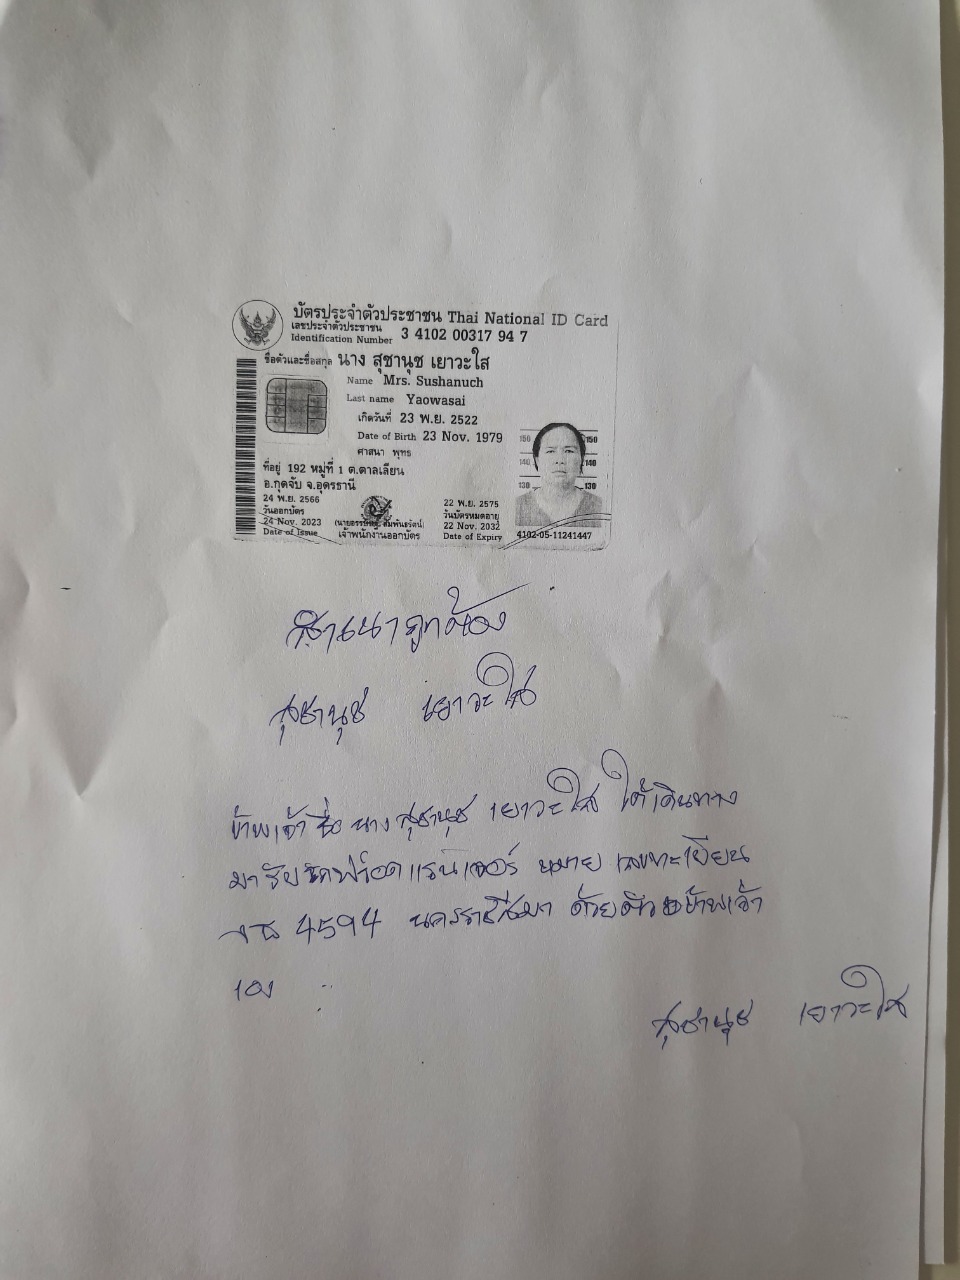 บัตรประจำตัวประชาชน Thai National ID Card
เลขประจำตัวประชาชน
Identification Number 3 4102 00317 94 7
ชื่อตัวและชื่อสกุล นาง สุชานุช เยาวะใส
Name Mrs. Sushanuch
Last name Yaowasai
เกิดวันที่ 23 พ.ย. 2522
Date of Birth 23 Nov. 1979
ศาสนา พุทธ
ที่อยู่ 192 หมู่ที่ 1 ต.ตาลเลียน
อ.กุดจับ จ.อุดรธานี
24 พ.ย. 2566
วันออกบัตร
24 Nov. 2023
Date of Issue
สัมพันธรัตน์)
เจ้าพนักงานออกบัตร
22 พ.ย. 2575
วันบัตรหมดอายุ
22 Nov. 2032
Date of Expiry
150 150
140 140
130 130
4102-05-11241447
สำเนาถูกต้อง
สุชานุช เยาวะใส
ข้าพเจ้า ชื่อ นาง สุชานุช เยาวะใส ได้เดินทาง
มารับรถฟอร์ดแรนเจอร์ หมายเลขทะเบียน
4594 นครราชสีมา ด้วยตัวข้าพเจ้า
เอง
สุชานุช เยาวะใส